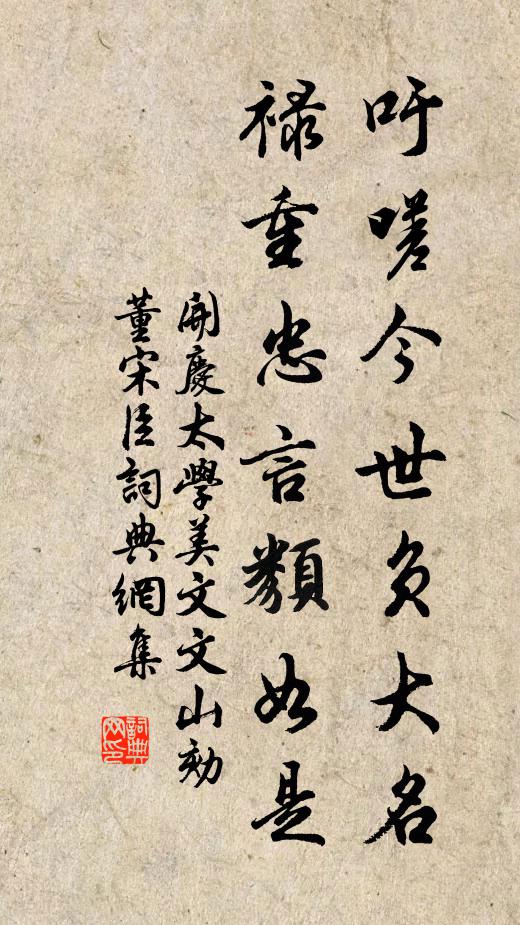 吁嗟今世負大名
祿重忠言類如是
開慶太學美文文山劾
董宋臣詞典網集
詞典网印